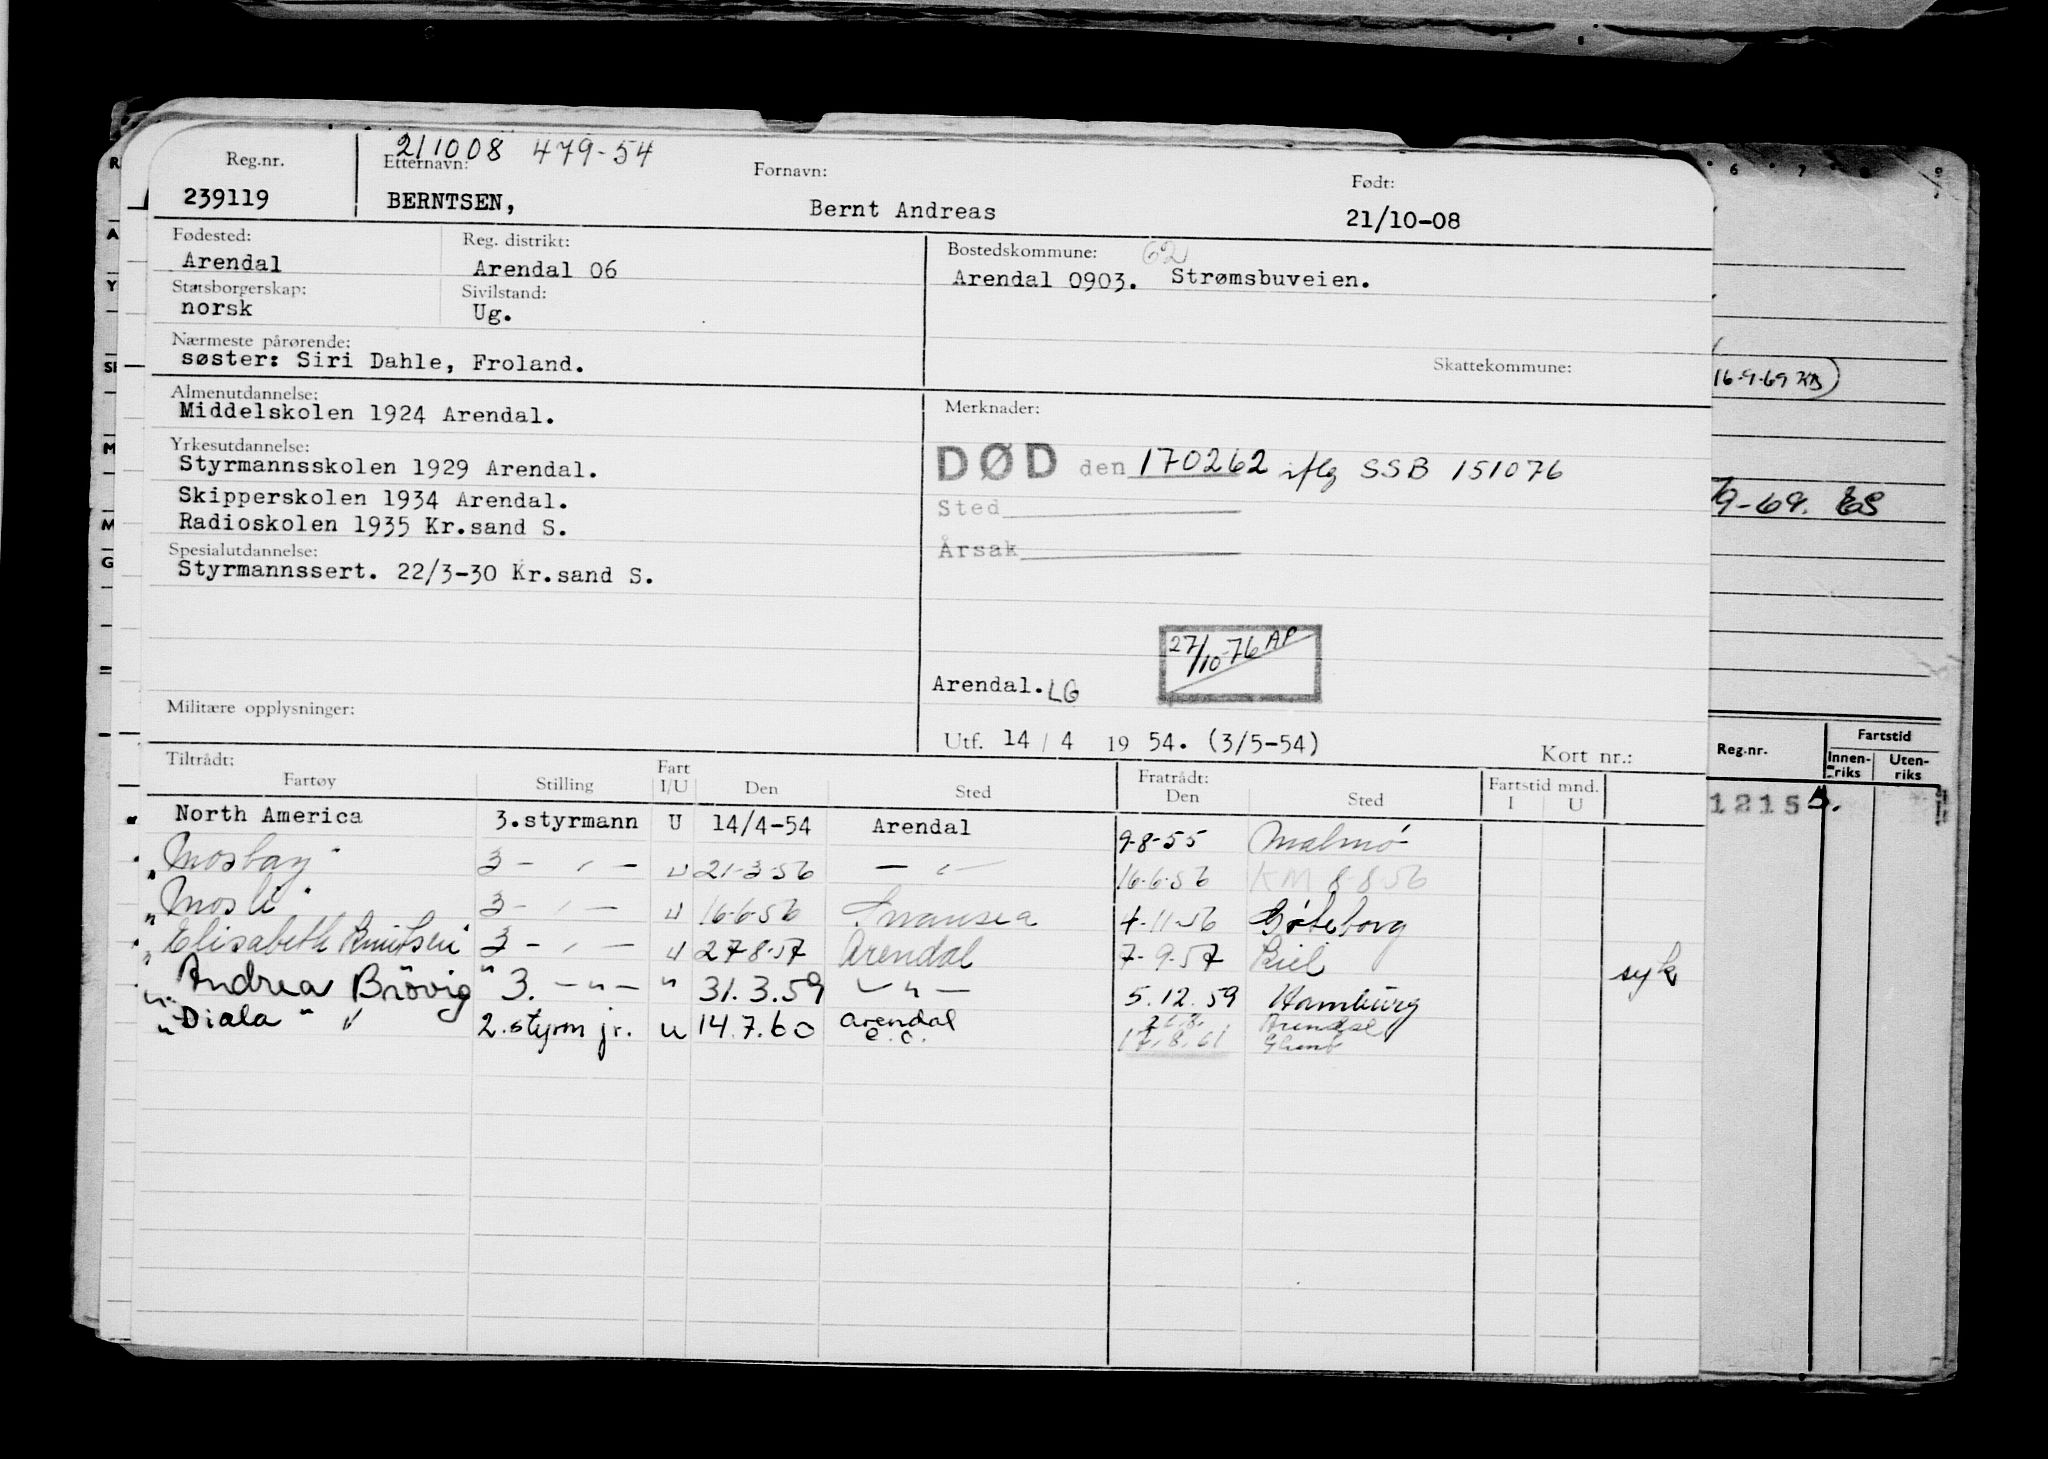 211008 479-54
Reg.nr. Etternavn: Fornavn: Født:
239119 BERNTSEN, Bernt Andreas 21/10-08
Fødested: Reg. distrikt: Bostedskommune: 62
Arendal Arendal 06 Arendal 0903. Strømsbuveien.
Statsborgerskap: Sivilstand:
norsk Ug.
Nærmeste pårørende: Skattekommune:
søster: Siri Dahle, Froland.
Almenutdannelse: Merknader:
Middelskolen 1924 Arendal.
Yrkesutdannelse:
Styrmannsskolen 1929 Arendal. DØD den 170262 iflg SSB 151076
Skipperskolen 1934 Arendal. Sted
Radioskolen 1935 Kr.sand S.
Spesialutdannelse: Årsak
Styrmannssert. 22/3-30 Kr.sand S.
27/10-76 AP
Arendal. LG
Militære opplysninger:
Utf. 14/4 1954. (3/5-54) Kort nr.:
Tiltrådt: Fratrådt: Fartstid mnd.
Fartøy Stilling Fart I/U Den Sted Den Sted I U
North America 3.styrmann U 14/4-54 Arendal 9-8-55 Malmö
" Mosbay " 3 - " - U 21-3-56 - " - 16-6-56 KM 8-8-56
" Mosli " 3 - " - U 16-6-56 Swansea 4-11-56 Göteborg
" Elisabeth Knutsen 3 - " - U 27-8-57 Arendal 7-9-57 Kiel syk
" Andrea Brövig " 3. - " - " 31.3.59 - " - 5.12.59 Hamburg
" Diala " 2.styrm jr. U 14.7.60 Arendal 17.8.61
16-9-69
9-69. ES
Reg.nr. Fartstid
Innenriks Utenriks
1215